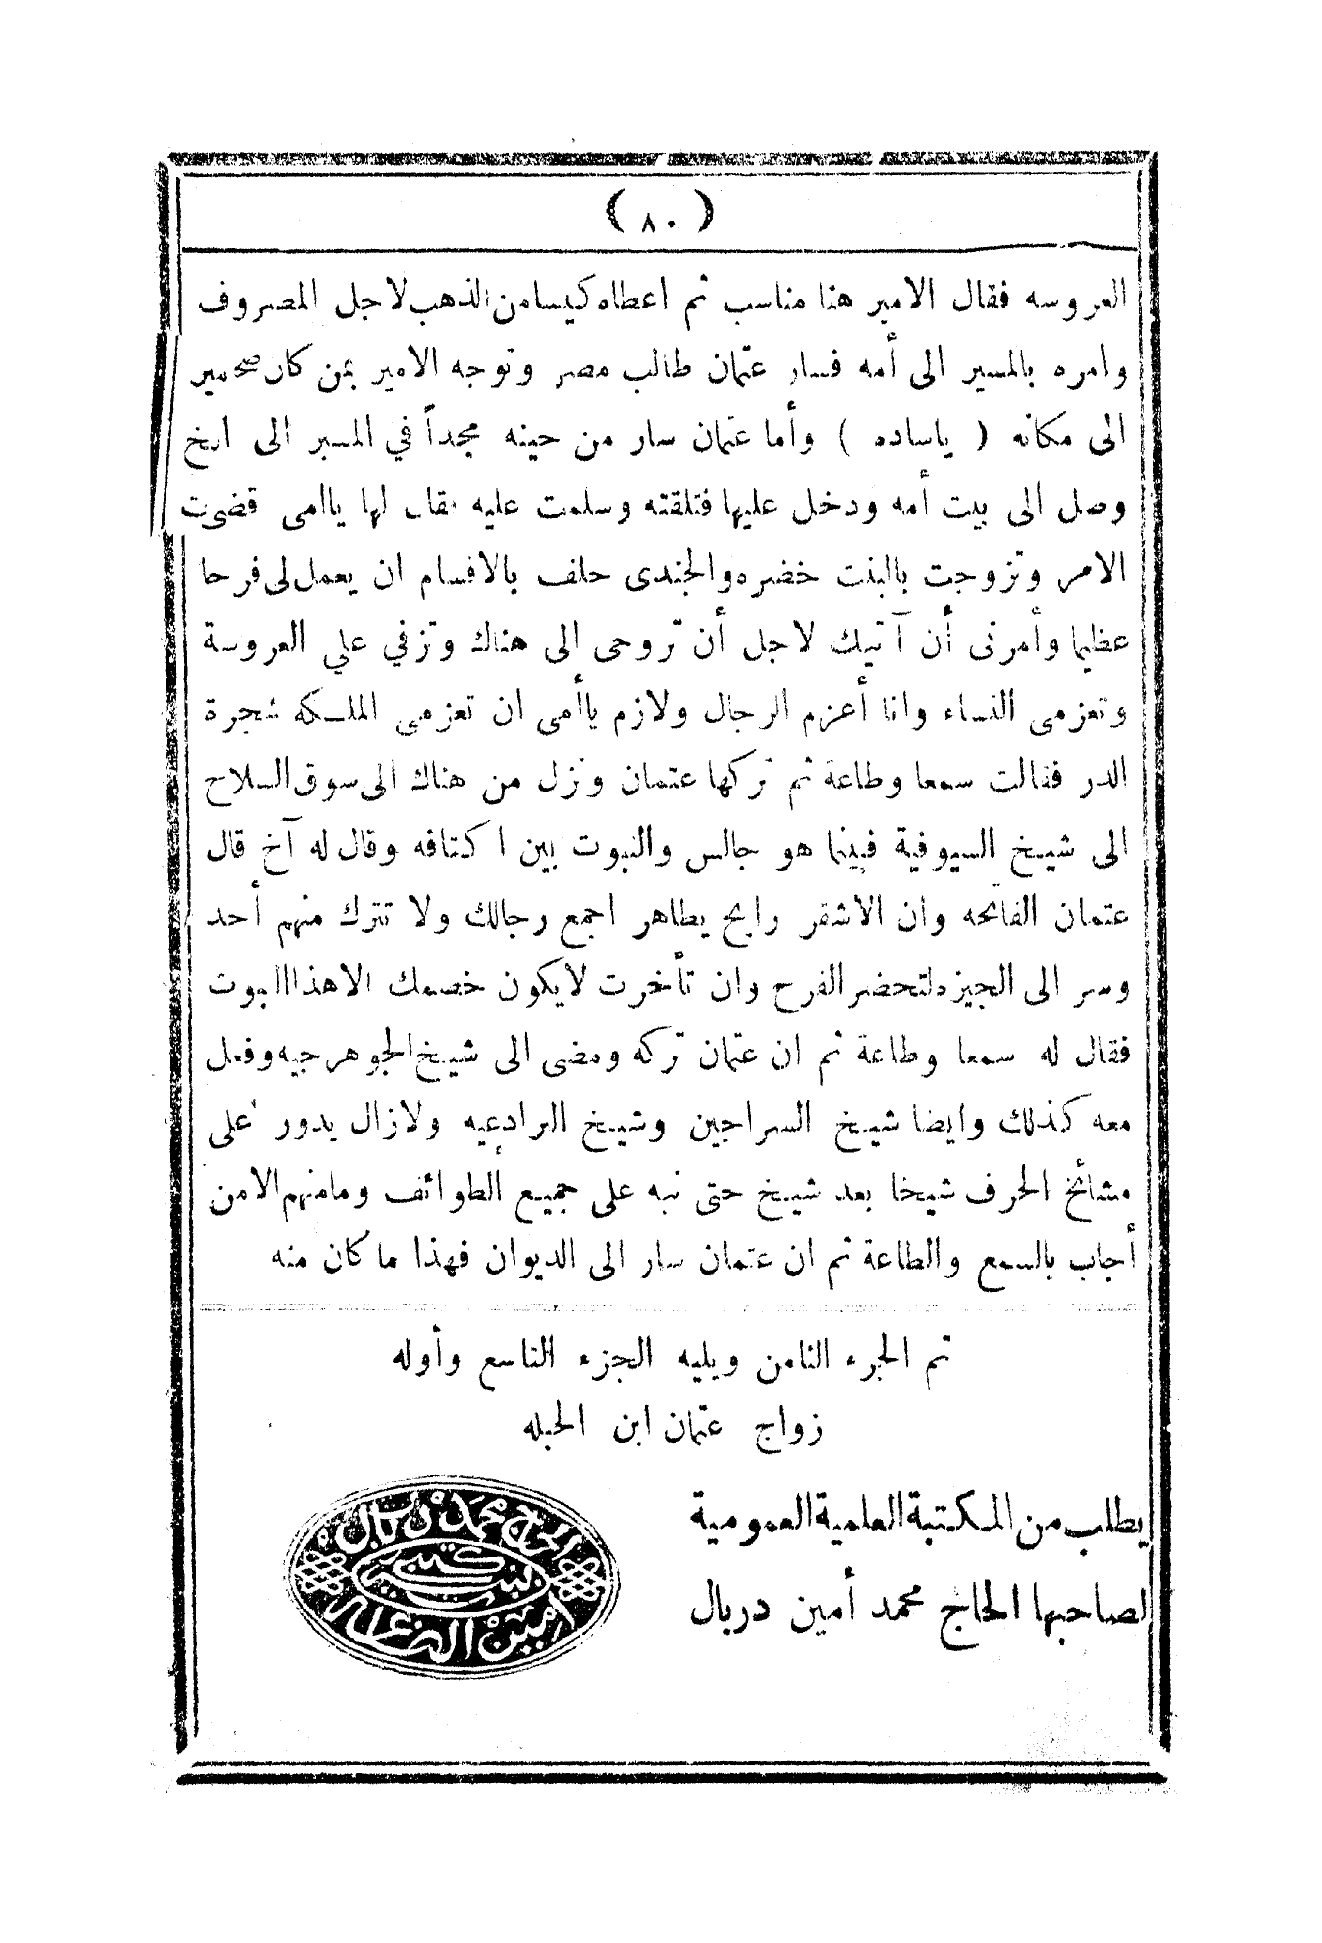 ( ٨٠ )
العروسه فقال الامير هنا مناسب ثم اعطاه كيسا من الذهب لاجل المصروف
وامره بالمسير الى أمه فسار عثمان طالب مصر وتوجه الامير بمن كان
الى مكانه ( ياساده ) وأما عثمان سار من حينه مجداً في المسير الى
وصل الى بيت أمه ودخل عليها فتلقته وسلمت عليه فقال لها ياامى قضيت
الامر وتزوجت بالبنت خضره والجندى حلف بالاقسام ان يعمل لى فرحا
عظيما وأمرنى أن آتيك لاجل أن تروحى الى هناك وتزفي علي العروسة
وتعزمى النساء وانا أعزم الرجال ولازم ياأمى ان تعزمى الملسكه شجرة
الدر فقالت سمعا وطاعة ثم تركها عتمان ونزل من هناك الى سوق السلاح
الى شيخ السيوفية فبينما هو جالس والنبوت بين اكتافه وقال له آخ قال
عتمان الفاتحه وان الاشقر رايح يطاهر اجمع رجالك ولا تترك منهم أحد
وسر الى الجيزه لتحضر الفرح وان تأخرت لايكون خصمك الاهذا النبوت
فقال له سمعا وطاعة ثم ان عثمان تركه ومضى الى شيخ الجوهرجيه وفعل
معه كذلك وايضا شيخ السراجين وشيخ البرادعيه ولازال يدور على
مشائخ الحرف شيخا بعد شيخ حتى نبه على جميع الطوائف ومامنهم الامن
أجاب بالسمع والطاعة ثم ان عتمان سار الى الديوان فهذا ما كان منه
تم الجزء الثامن ويليه الجزء التاسع وأوله
زواج عثمان ابن الحبله
يطلب من المكتبة العلمية العمومية
لصاحبها الحاج محمد أمين دربال